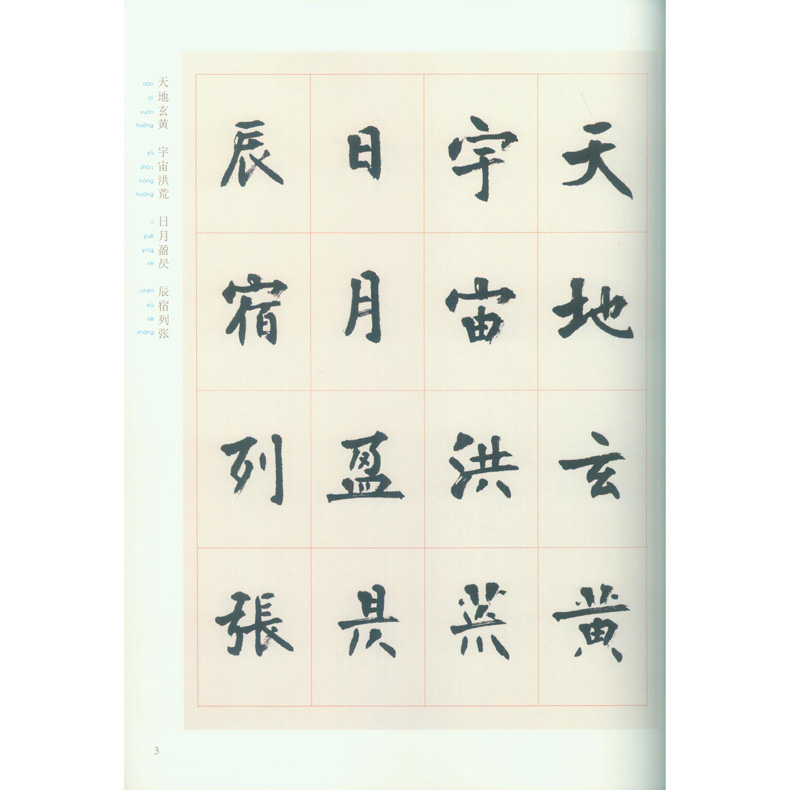 天地玄黄
宇宙洪荒
日月盈昃
辰宿列張
天地玄黄 宇宙洪荒 日月盈昃 辰宿列张
tiān dì xuán huáng yǔ zhòu hóng huāng rì yuè yíng zè chén xiù liè zhāng
3